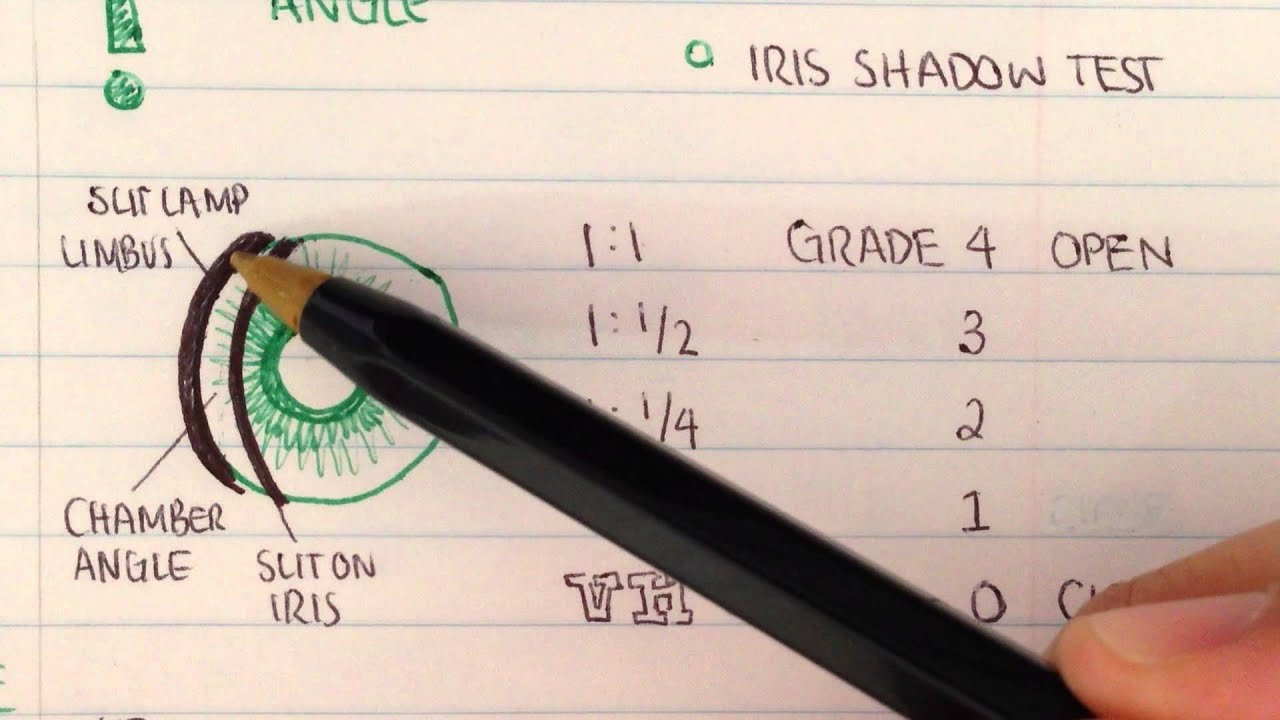 ANGLE
IRIS SHADOW TEST
SLIT LAMP
LIMBUS
1:1 GRADE 4 OPEN
1:1/2 3
1/4 2
1
CHAMBER
ANGLE
SLIT ON
IRIS
VH 0